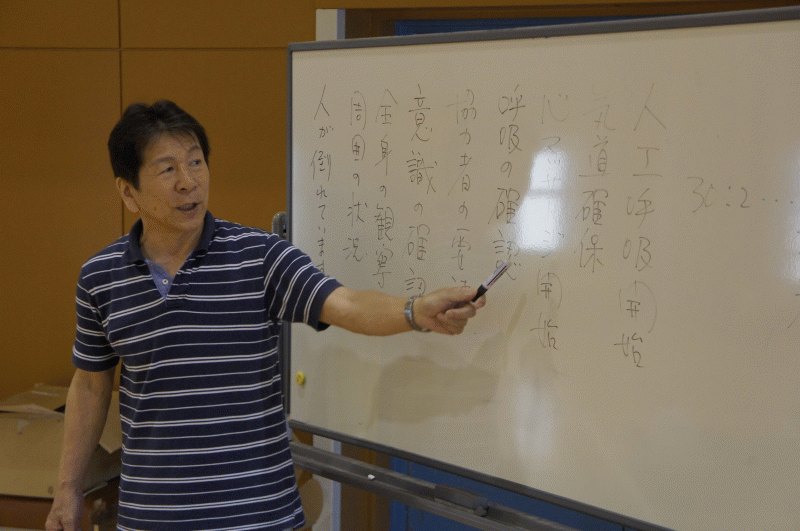 人が倒れています
周囲の状況
全身の観察
意識の確認
協力者の要請
呼吸の確認
心 ジ開始
気道確保
人工呼吸開始
30:2…